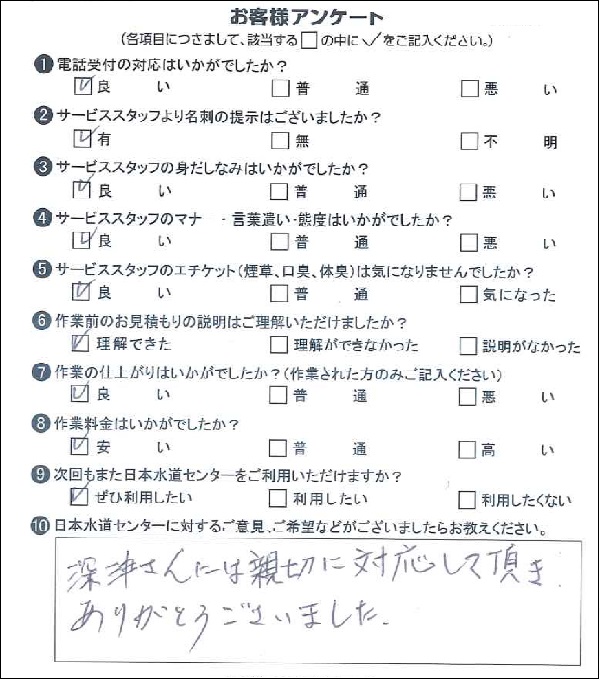 お客様アンケート
(各項目につさまして、該当する□の中に✓をご記入ください。)
❶ 電話受付の対応はいかがでしたか?
☑ 良い □ 普通 □ 悪い
❷ サービススタッフより名刺の提示はございましたか?
☑ 有 □ 無 □ 不明
❸ サービススタッフの身だしなみはいかがでしたか?
☑ 良い □ 普通 □ 悪い
❹ サービススタッフのマナ ・言葉遣い・態度はいかがでしたか?
☑ 良い □ 普通 □ 悪い
❺ サービススタッフのエチケット(煙草、口臭、体臭)は気になりませんでしたか?
☑ 良い □ 普通 □ 気になった
❻ 作業前のお見積もりの説明はご理解いただけましたか?
☑ 理解できた □ 理解ができなかった □ 説明がなかった
❼ 作業の仕上がりはいかがでしたか?(作業された方のみご記入ください)
☑ 良い □ 普通 □ 悪い
❽ 作業料金はいかがでしたか?
☑ 安い □ 普通 □ 高い
❾ 次回もまた日本水道センターをご利用いただけますか?
☑ ぜひ利用したい □ 利用したい □ 利用したくない
❿ 日本水道センターに対するご意見、ご希望などがございましたらお教えください。
深津さんには親切に対応して頂き
ありがとうございました.